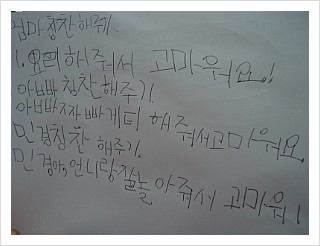 엄마칭찬해주기.
1.요리해줘서 고마워요!
아빠칭찬해주기
아빠짜빠게티 해줘서고마워요.
민경칭찬 해주기.
민경아,언니랑잘놀아줘서 고마워!